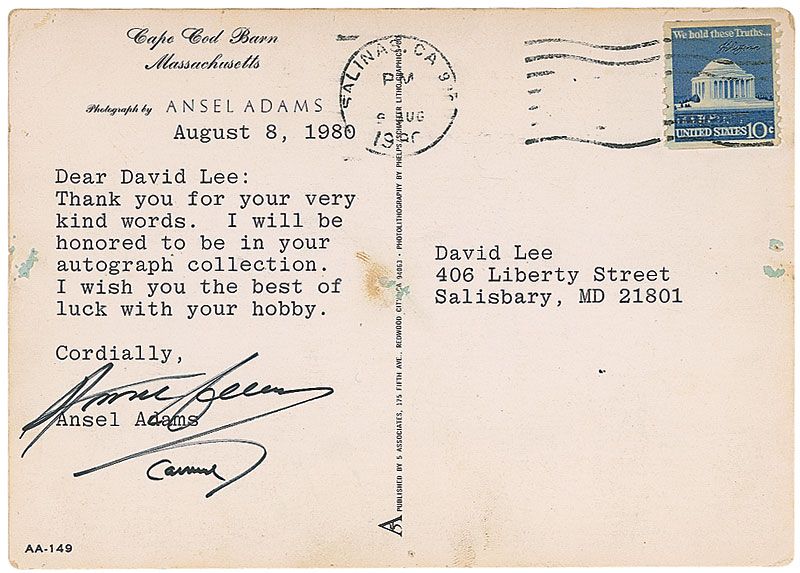 Cape Cod Barn
Massachusetts
Photograph by ANSEL ADAMS
August 8, 1980
Dear David Lee:
Thank you for your very
kind words. I will be
honored to be in your
autograph collection.
I wish you the best of
luck with your hobby.
Cordially,
Ansel Adams
Ansel Adams
Carmel
AA-149
SALINAS, CA
PM
AUG
PUBLISHED BY 5 ASSOCIATES, 175 FIFTH AVE., REDWOOD CITY, CA 94063 · PHOTOLITHOGRAPHY BY PHELPS/SCHAEFER LITHOGRAPHICS
We hold these Truths...
UNITED STATES 10c
David Lee
406 Liberty Street
Salisbary, MD 21801